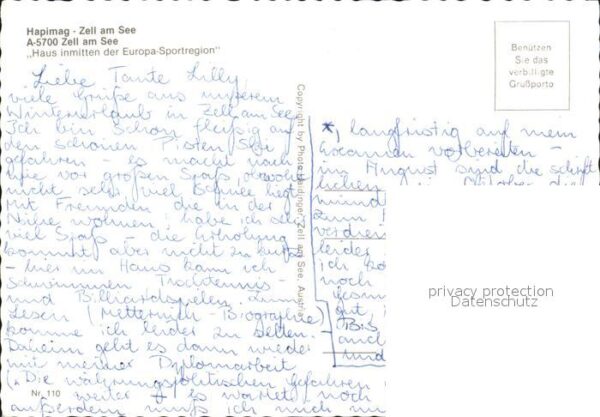 Hapimag - Zell am See
A-5700 Zell am See
„Haus inmitten der Europa-Sportregion"
Benützen
Sie das
verbilligte
Grußporto
Liebe Tante Lilly,
viele Grüße aus unserem
Winterurlaub in Zell am See
Ich bin schon fleißig auf
den schönen Pisten Ski
gefahren - es macht nach
wie vor großen Spaß, obwohl
nicht sehr viel Schnee liegt
Mit Freunden die in der
Nähe wohnen, habe ich sehr
viel Spaß die Erholung
kommt aber nicht zu kurz
- hier im Haus kann ich
schwimmen Tischtennis-
und Billiardspielen. Zum
Lesen (Metternich-Biographie)
komme ich leider zu selten.
Daheim geht es dann wieder
mit meiner Diplomarbeit
(„Die währungspolitischen Gefahren
weiter * es wartet noch
außerdem muß ich mich
*, langfristig auf mein
Examen vorbereiten -
im August sind die schrift
lichen
münd
zum
verdien
leider
ich
noch
gesun
gut
Bis
auch
und
Copyright by Photo Haidinger, Zell am See, Austria
Nr. 110
privacy protection
Datenschutz